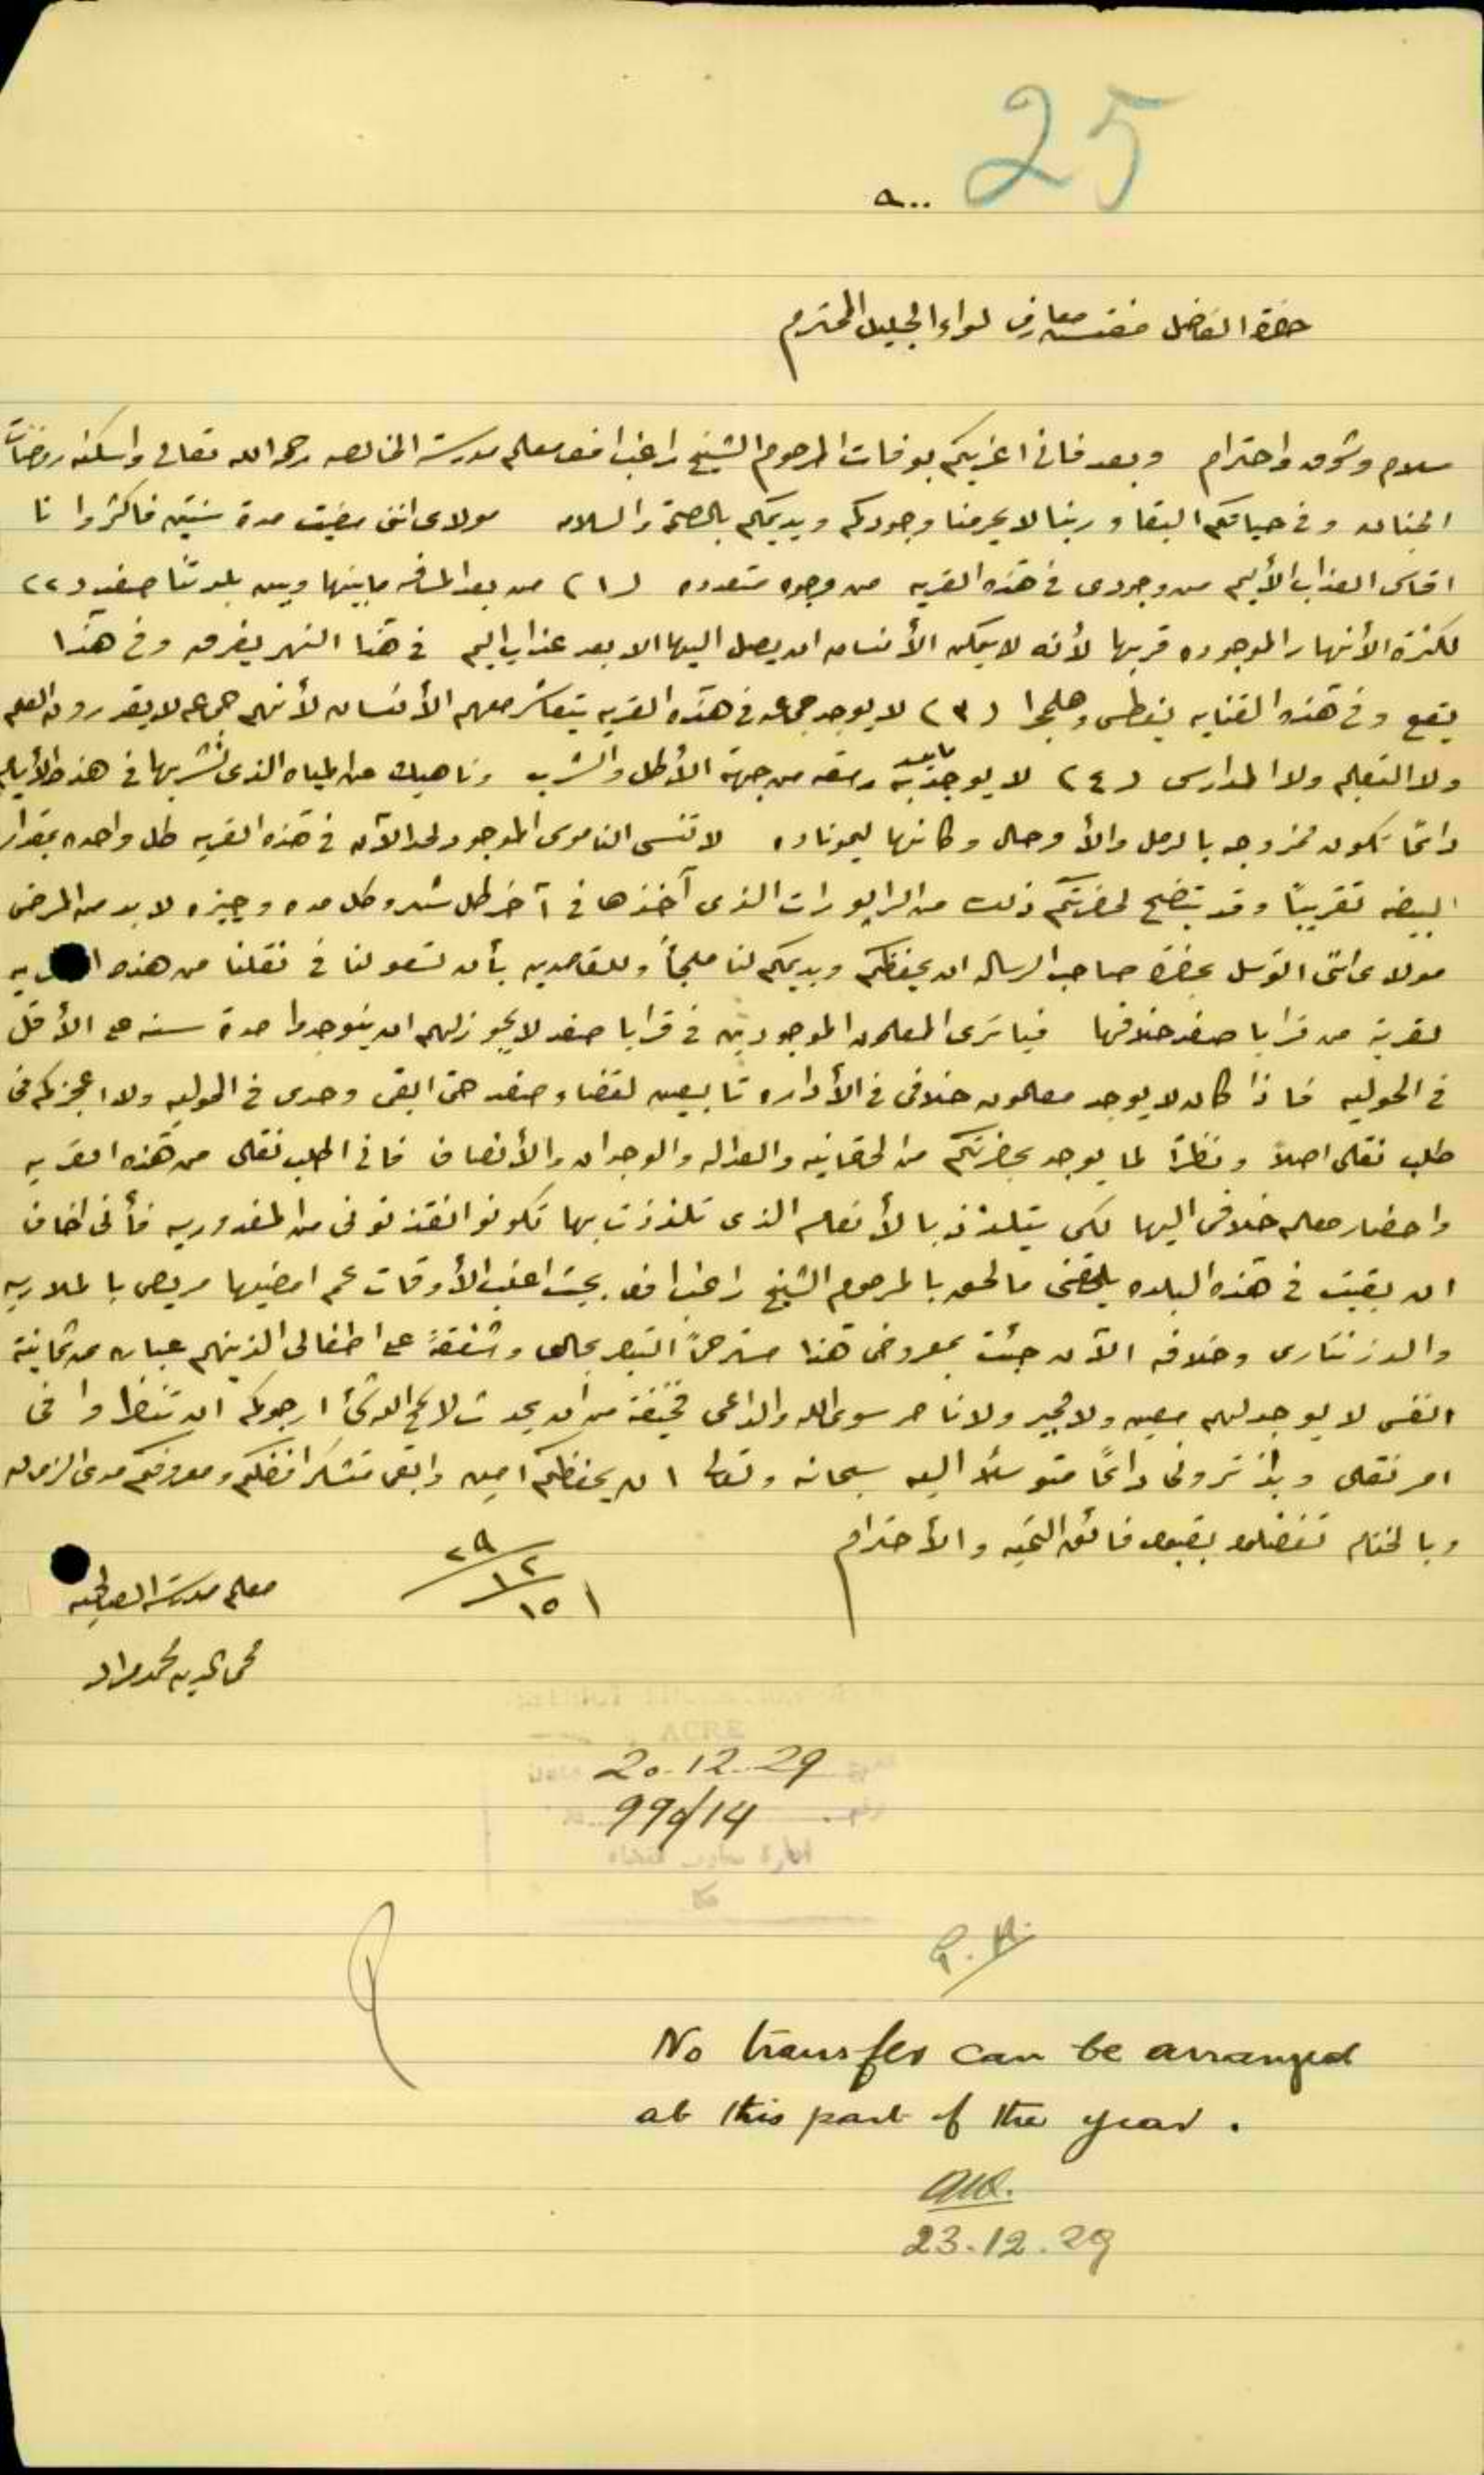 25
حضرة الفاضل مفتش معارف لواء الجليل المحترم
سلام وشوق واحترام وبعد فاني اعزيكم بوفات المرحوم الشيخ راغب افندي معلم مدرسة الخالصه رحمه الله تعالى واسكنه روضات
الجنان وفي حياتكم البقاء وربنا لا يحرمنا وجودكم ويديمكم بالصحة والسلامه مولاى انني مضيت مدة سنتين فاكثر وانا
اقاسى العذاب الأليم من وجودى في هذه القريه من وجوه متعدده (١) من بعد المسافه ما بينها وبين بلدتنا صفد (٢)
لكثرة الأنهار الموجوده قربها لأنه لا يمكن الأنسان ان يصل اليها الا بعد عذاب اليم في هذا النهر يغرق وفي هذا
يقع وفي هذه القنايه يغطس وهلمجرا (٣) لا يوجد جماعه في هذه القريه يتعاشر معهم الأنسان لأنهم جماعه لا يقدرون العلم
ولا التعليم ولا المدارس (٤) لا يوجد بها من جهة الأكل والشرب وناهيك عن المياه الذى نشربها في هذه الأيام
دائمًا تكون ممزوجه بالرمل والأوحال وكانها ليموناده لا تنسى الناموس الموجود لحد الآن في هذه القريه كل واحده بمقدار
البيضه تقريبًا وقد يتضح لحضرتكم ذلك من الرابورات الذى آخذها في آخر كل شهر وكل مده وجيزه لا بد من المرض
مولاى انني اتوسل بحضرة صاحب الرساله ان يحفظكم ويديمكم لنا ملجأ وللقاصدين بأن تسعو لنا في نقلنا من هذه القريه
لقرية من قرايا صفد خلافها فيا ترى المعلمون الموجودين في قرايا صفد لا يجوز لهم ان يتوجدوا مدة سنه على الأقل
في الحوليه فاذا كان لا يوجد معلمون خلافي في الأداره تابعين لقضاء صفد حتى ابقى وحدى في الحوليه ولا اعجزكم في
طلب نقلى اصلاً ونظرًا لما يوجد بحضرتكم من الحقانيه والعداله والوجدان والأنصاف فاني اطلب نقلى من هذه القريه
واحضار معلم خلافى اليها لكى يتلذذ بالأنعام الذى تلذذت بها تكونو انقذتونى من المغدوريه فأني اخاف
ان بقيت في هذه البلده يلحقنى ما لحق بالمرحوم الشيخ راغب افندي بحيث اغلب الأوقات عم امضيها مريض بالملاريه
والدزنتارى وخلافه الآن جئت بمعروضى هذا مسترحمًا التبصر بحالى وشفقةً على اطفالى الذينهم عباره عن ثمانية
انفس لا يوجد لهم معين ولا مجير ولا ناصر سوى الله والداعى فخيفة من أن يحدث لا سمح الله شئ ارجوكم ان تنظروا في
امر نقلى وبذا ترونى دائمًا متوسلاً اليه سبحانه وتعالى ان يحفظكم امين وابقى متشكرا فضلكم ومعروفكم مدى الزمان
وبالختام تفضلوا بقبول فائق التحيه والأحترام
٢٩
١٢
١٥
معلم مدرسة
محى الدين محمد مراد
ACRE
20.12.29
990/14
No transfer can be arranged
at this part of the year.
23.12.29